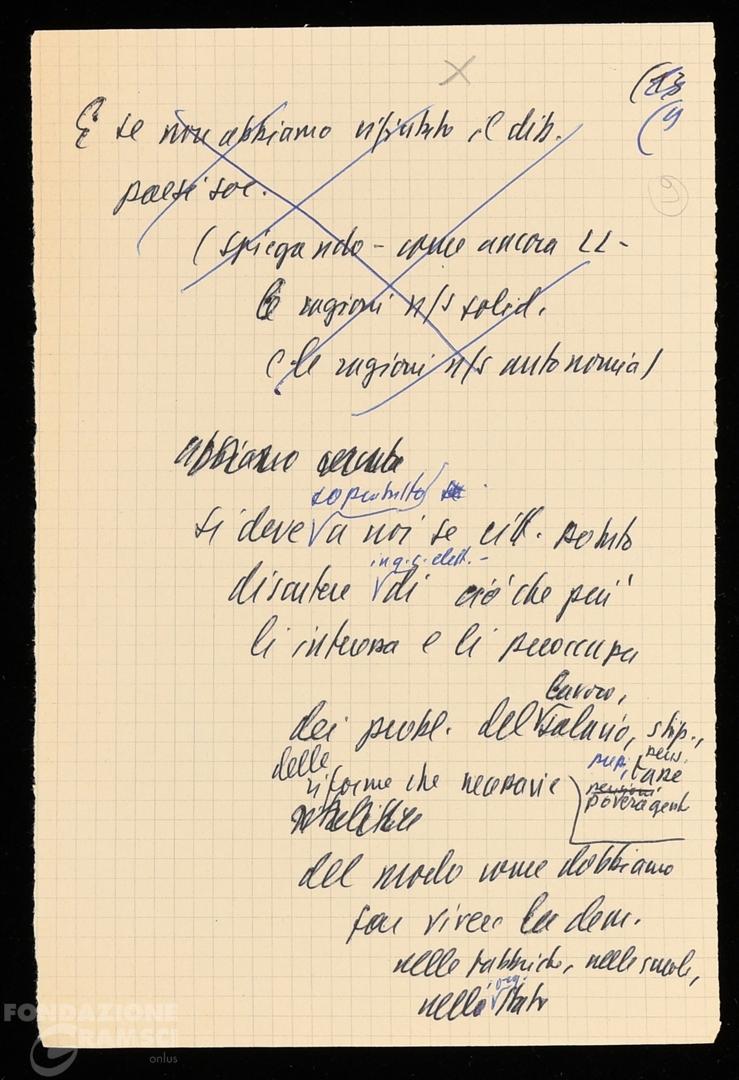 (13
(9
9
E se non abbiamo rifiutato il dib.
paesi soc.
(spiegando - come ancora LL -
le ragioni n/s solid.
e le ragioni n/s autonomia)
abbiamo
soprattutto
si deve a noi se citt. potuto
ing. c. elett. -
discutere di ciò che più
li interessa e li preoccupa
lavoro,
dei probl. del salario, stip.,
pens.
delle riforme che necessarie
prezzi, tasse
pensioni
povera gente
del modo come dobbiamo
far vivere la dem.
nelle fabbriche, nelle scuole,
org.
nello Stato
FONDAZIONE
GRAMSCI
onlus